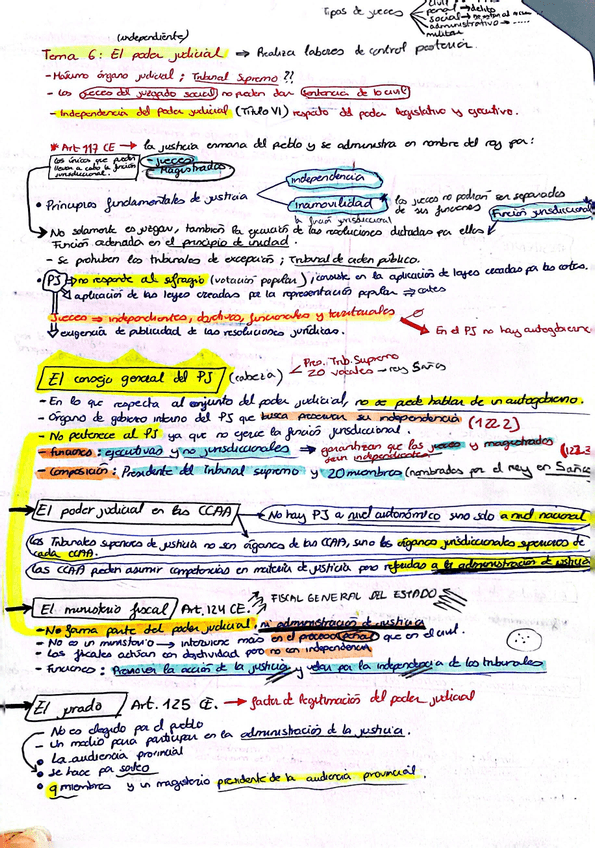 Tipos de jueces
civil
penal → delito
social →
administrativo → .....
militar
(independiente)
Tema 6: El poder judicial → Realiza labores de control posterior.
- Máximo órgano judicial ; Tribunal Supremo ??
- Los jueces del juzgado social no pueden dar sentencia de lo civil
- Independencia del poder judicial (Título VI) respecto del poder legislativo y ejecutivo.
* Art. 117 CE → la justicia emana del pueblo y se administra en nombre del rey por:
Los únicos que pueden llevar a cabo la función jurisdiccional.
- Jueces
- Magistrados
• Principios fundamentales de justicia
Independencia
Inamovilidad
los jueces no podrán ser separados de sus funciones
la función jurisdiccional
Función jurisdiccional
No solamente es juzgar, también la ejecución de las resoluciones dictadas por ellos
Función ordenada en el principio de unidad.
- Se prohiben los tribunales de excepción ; Tribunal de orden público.
• PJ → no responde al sufragio (votación popular), consiste en la aplicación de leyes creadas por las cortes.
aplicación de las leyes creadas por la representación popular → cortes
Jueces → independientes, objetivos, funcionales y territoriales
exigencia de publicidad de las resoluciones jurídicas.
En el PJ no hay autogobierno
El consejo general del PJ (cabeza)
Pres. Trib. Supremo
20 vocales → rey 5años
- En lo que respecta al conjunto del poder judicial, no se puede hablar de un autogobierno.
- Órgano de gobierno interno del PJ que busca procurar su independencia (122.2)
- No pertenece al PJ ya que no ejerce la función jurisdiccional.
- funciones: ejecutivas y no jurisdiccionales → garantizan que los jueces y magistrados sean independientes (122.3
- Composición: Presidente del tribunal supremo y 20 miembros (nombrados por el rey en 5años
El poder judicial en las CCAA → No hay PJ a nivel autonómico sino solo a nivel nacional
Los Tribunales superiores de justicia no son órganos de las CCAA, sino los órganos jurisdiccionales superiores de
cada CCAA.
Las CCAA pueden asumir competencias en materia de justicia pero referidas a la administración de justicia
El ministerio fiscal / Art. 124 CE.
FISCAL GENERAL DEL ESTADO
- No forma parte del poder judicial ni administración de justicia
- No es un ministerio → interviene más en el proceso penal que en el civil.
- Los fiscales actúan con objetividad pero no con independencia
- Funciones: Promover la acción de la justicia y velar por la independencia de los tribunales
El jurado / Art. 125 CE. → factor de legitimación del poder judicial
No es elegido por el pueblo
- Un medio para participar en la administración de la justicia.
• La audiencia provincial
• se hace por sorteo
• 9 miembros y un magistrado presidente de la audiencia provincial.